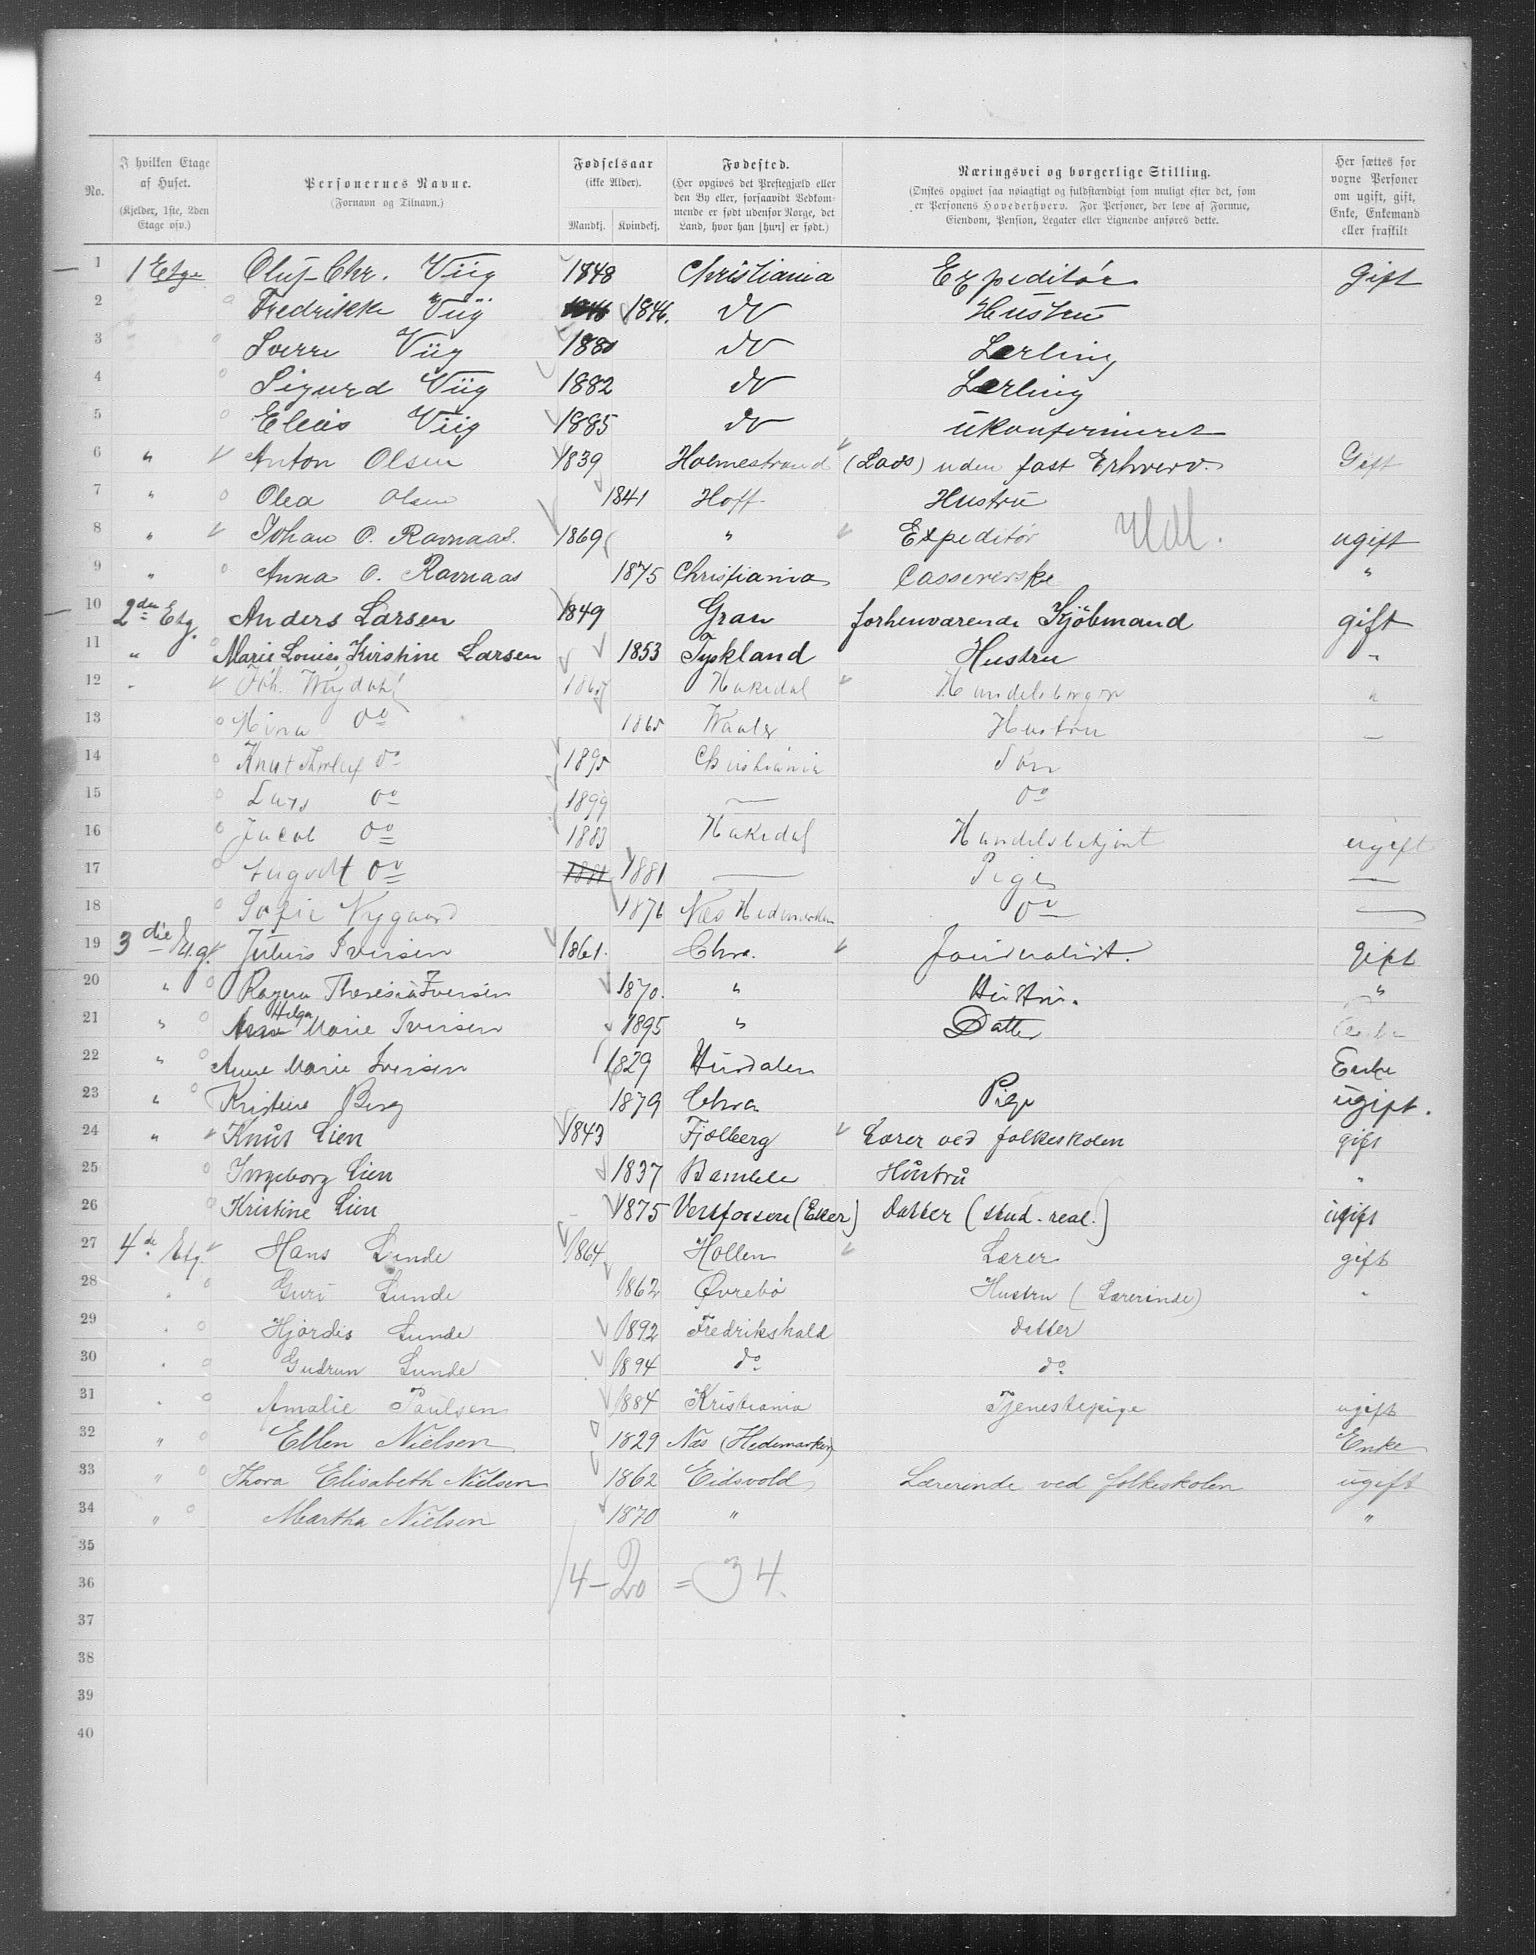 No.
I hvilken Etage af Huset.
(Kjelder, 1ste, 2den Etage osv.)
Personernes Navne.
(Fornavn og Tilnavn.)
Fødselsaar
(ikke Alder).
Mandkj. Kvindekj.
Fødested.
(Her opgives det Prestegjæld eller den By eller, forsaavidt Vedkommende er født udenfor Norge, det Land, hvor han [hun] er født.)
Næringsvei og borgerlige Stilling.
(Ønskes opgivet saa nøiagtigt og fuldstændigt som muligt efter det, som er Personens Hovederhverv. For Personer, der leve af Formue, Eiendom, Pension, Legater eller Lignende anføres dette.
Her sættes for voxne Personer om ugift, gift, Enke, Enkemand eller fraskilt
1 1 Etge Oluf Chr. Viig 1848 Christiania Expeditør Gift
2 Fredrikke Viig 1846. do Hustru
3 Sverre Viig 1880 do Lærling
4 Sigurd Viig 1882 do Lærling
5 Elias Viig 1885 do ukonfirmeret
6 " Anton Olsen 1839 Holmestrand (Lods) uden fast Erhverv. Gift
7 " Olea Olsen 1841 Hoff. Hustru
8 " Johan O. Ravnaas. 1869 " Expeditør ugift
9 " Anna O. Ravnaas 1875 Christiania Cassererske "
10 2den Etg. Anders Larsen 1849 Gran forhenværende Kjöbmand gift
11 " Marie Louise Kirstine Larsen 1853 Tyskland Hustru "
12 " Joh. 1865 Hakedal Handelsborger "
13 Mina do 1865 Waaler Hustru —
14 Knut Thorleif do 1895 Christiania Søn
15 Lars do 1899 — do
16 Jacob do 1883 Hakedal Handelsbetjent ugift
17 do 1881 1881 — Pige —
18 Sofie Nygaard 1876 Næs Hedemarken do —
19 3die Etg. Julius Iversen 1861. Chra. Journalist. gift
20 " Ragna Theresia Iversen 1870. " Hustru. "
21 " Helga Marie Iversen 1895 " Datter
22 " Anne Marie Iversen 1829 Hurdalen Enke
23 " Kristine Berg 1879 Chra. Pige ugift.
24 " Knut Lien 1843 Fjelberg Lærer ved folkeskolen gift
25 Ingeborg Lien 1837 Bamble Hustru "
26 Kristine Lien 1875 Vestfossen (Eker) Datter (stud. real.) ugift
27 4de Etg. Hans Lunde 1864 Hollen Lærer gift
28 " Guri Lunde 1862 Øvrebø Hustru (Lærerinde) "
29 " Hjørdis Lunde 1892 Fredrikshald datter
30 " Gudrun Lunde 1894 do do
31 " Amalie Paulsen 1884 Kristiania Tjenestepige ugift
32 " Ellen Nielsen 1829 Næs (Hedemarken) Enke
33 " Thora Elisabeth Nielsen 1862 Eidsvold Lærerinde ved folkeskolen ugift
34 " Martha Nielsen 1870 " "
35
36 14 - 20 = 34.
37
38
39
40